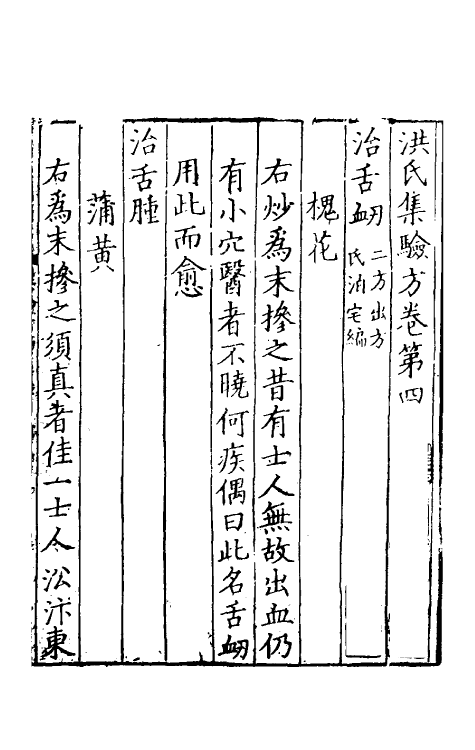 洪氏集驗方卷第四
治舌衂二方出方
氏泊宅編
槐花
右炒爲末摻之昔有士人無故出血仍
有小穴醫者不曉何疾偶曰此名舌衂
用此而愈
治舌腫
蒲黃
右爲末摻之須真者佳一士人沿汴東